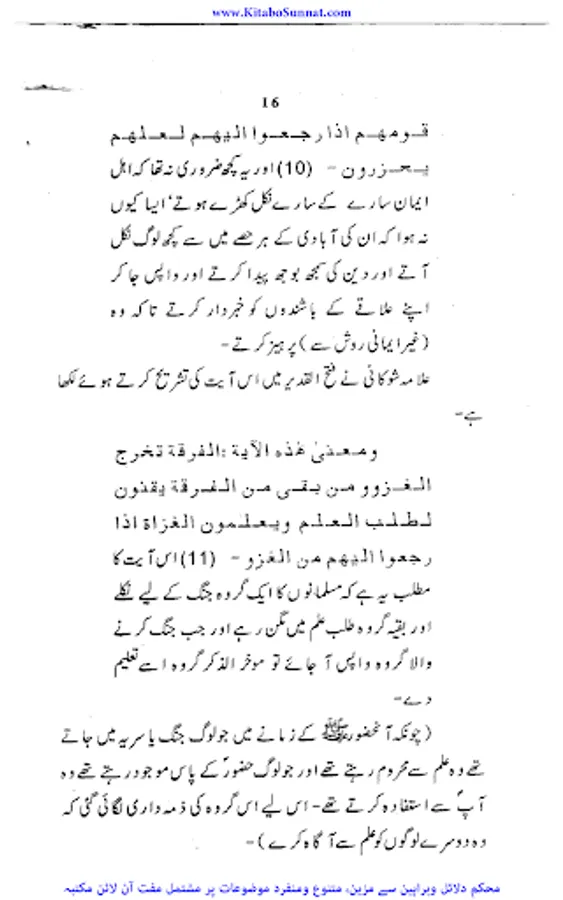 www.KitaboSunnat.com
16
قومهم اذا رجعوا اليهم لعلهم
يحزرون - (10) اور یہ کچھ ضروری نہ تھا کہ اہل
ایمان سارے کے سارے نکل کھڑے ہوتے' ایسا کیوں
نہ ہوا کہ ان کی آبادی کے ہر حصے میں سے کچھ لوگ نکل
آتے اور دین کی سمجھ بوجھ پیدا کرتے اور واپس جا کر
اپنے علاقے کے باشندوں کو خبردار کرتے تاکہ وہ
(غیر ایمانی روش سے) پرہیز کرتے-
علامہ شوکانی نے فتح القدیر میں اس آیت کی تشریح کرتے ہوئے لکھا
ہے-
ومعنىٰ هٰذه الآية :الفرقة تخرج
الغزوو من بقى من الفرقة يقنون
لطلب العلم ويعلمون الغزاة اذا
رجعوا اليهم من الغزو - (11) اس آیت کا
مطلب یہ ہے کہ مسلمانوں کا ایک گروہ جنگ کے لیے نکلے
اور بقیہ گروہ طلب علم میں مگن رہے اور جب جنگ کرنے
والا گروہ واپس آ جائے تو موخر الذکر گروہ اسے تعلیم
دے-
(چونکہ آنحضورﷺ کے زمانے میں جو لوگ جنگ یا سریہ میں جاتے
تھے وہ علم سے محروم رہتے تھے اور جو لوگ حضورؐ کے پاس موجود رہتے تھے وہ
آپؐ سے استفادہ کرتے تھے- اس لیے اس گروہ کی ذمہ داری لگائی گئی کہ
وہ دوسرے لوگوں کو علم سے آگاہ کرے)-
محکم دلائل وبراہین سے مزین، متنوع ومنفرد موضوعات پر مشتمل مفت آن لائن مکتبہ